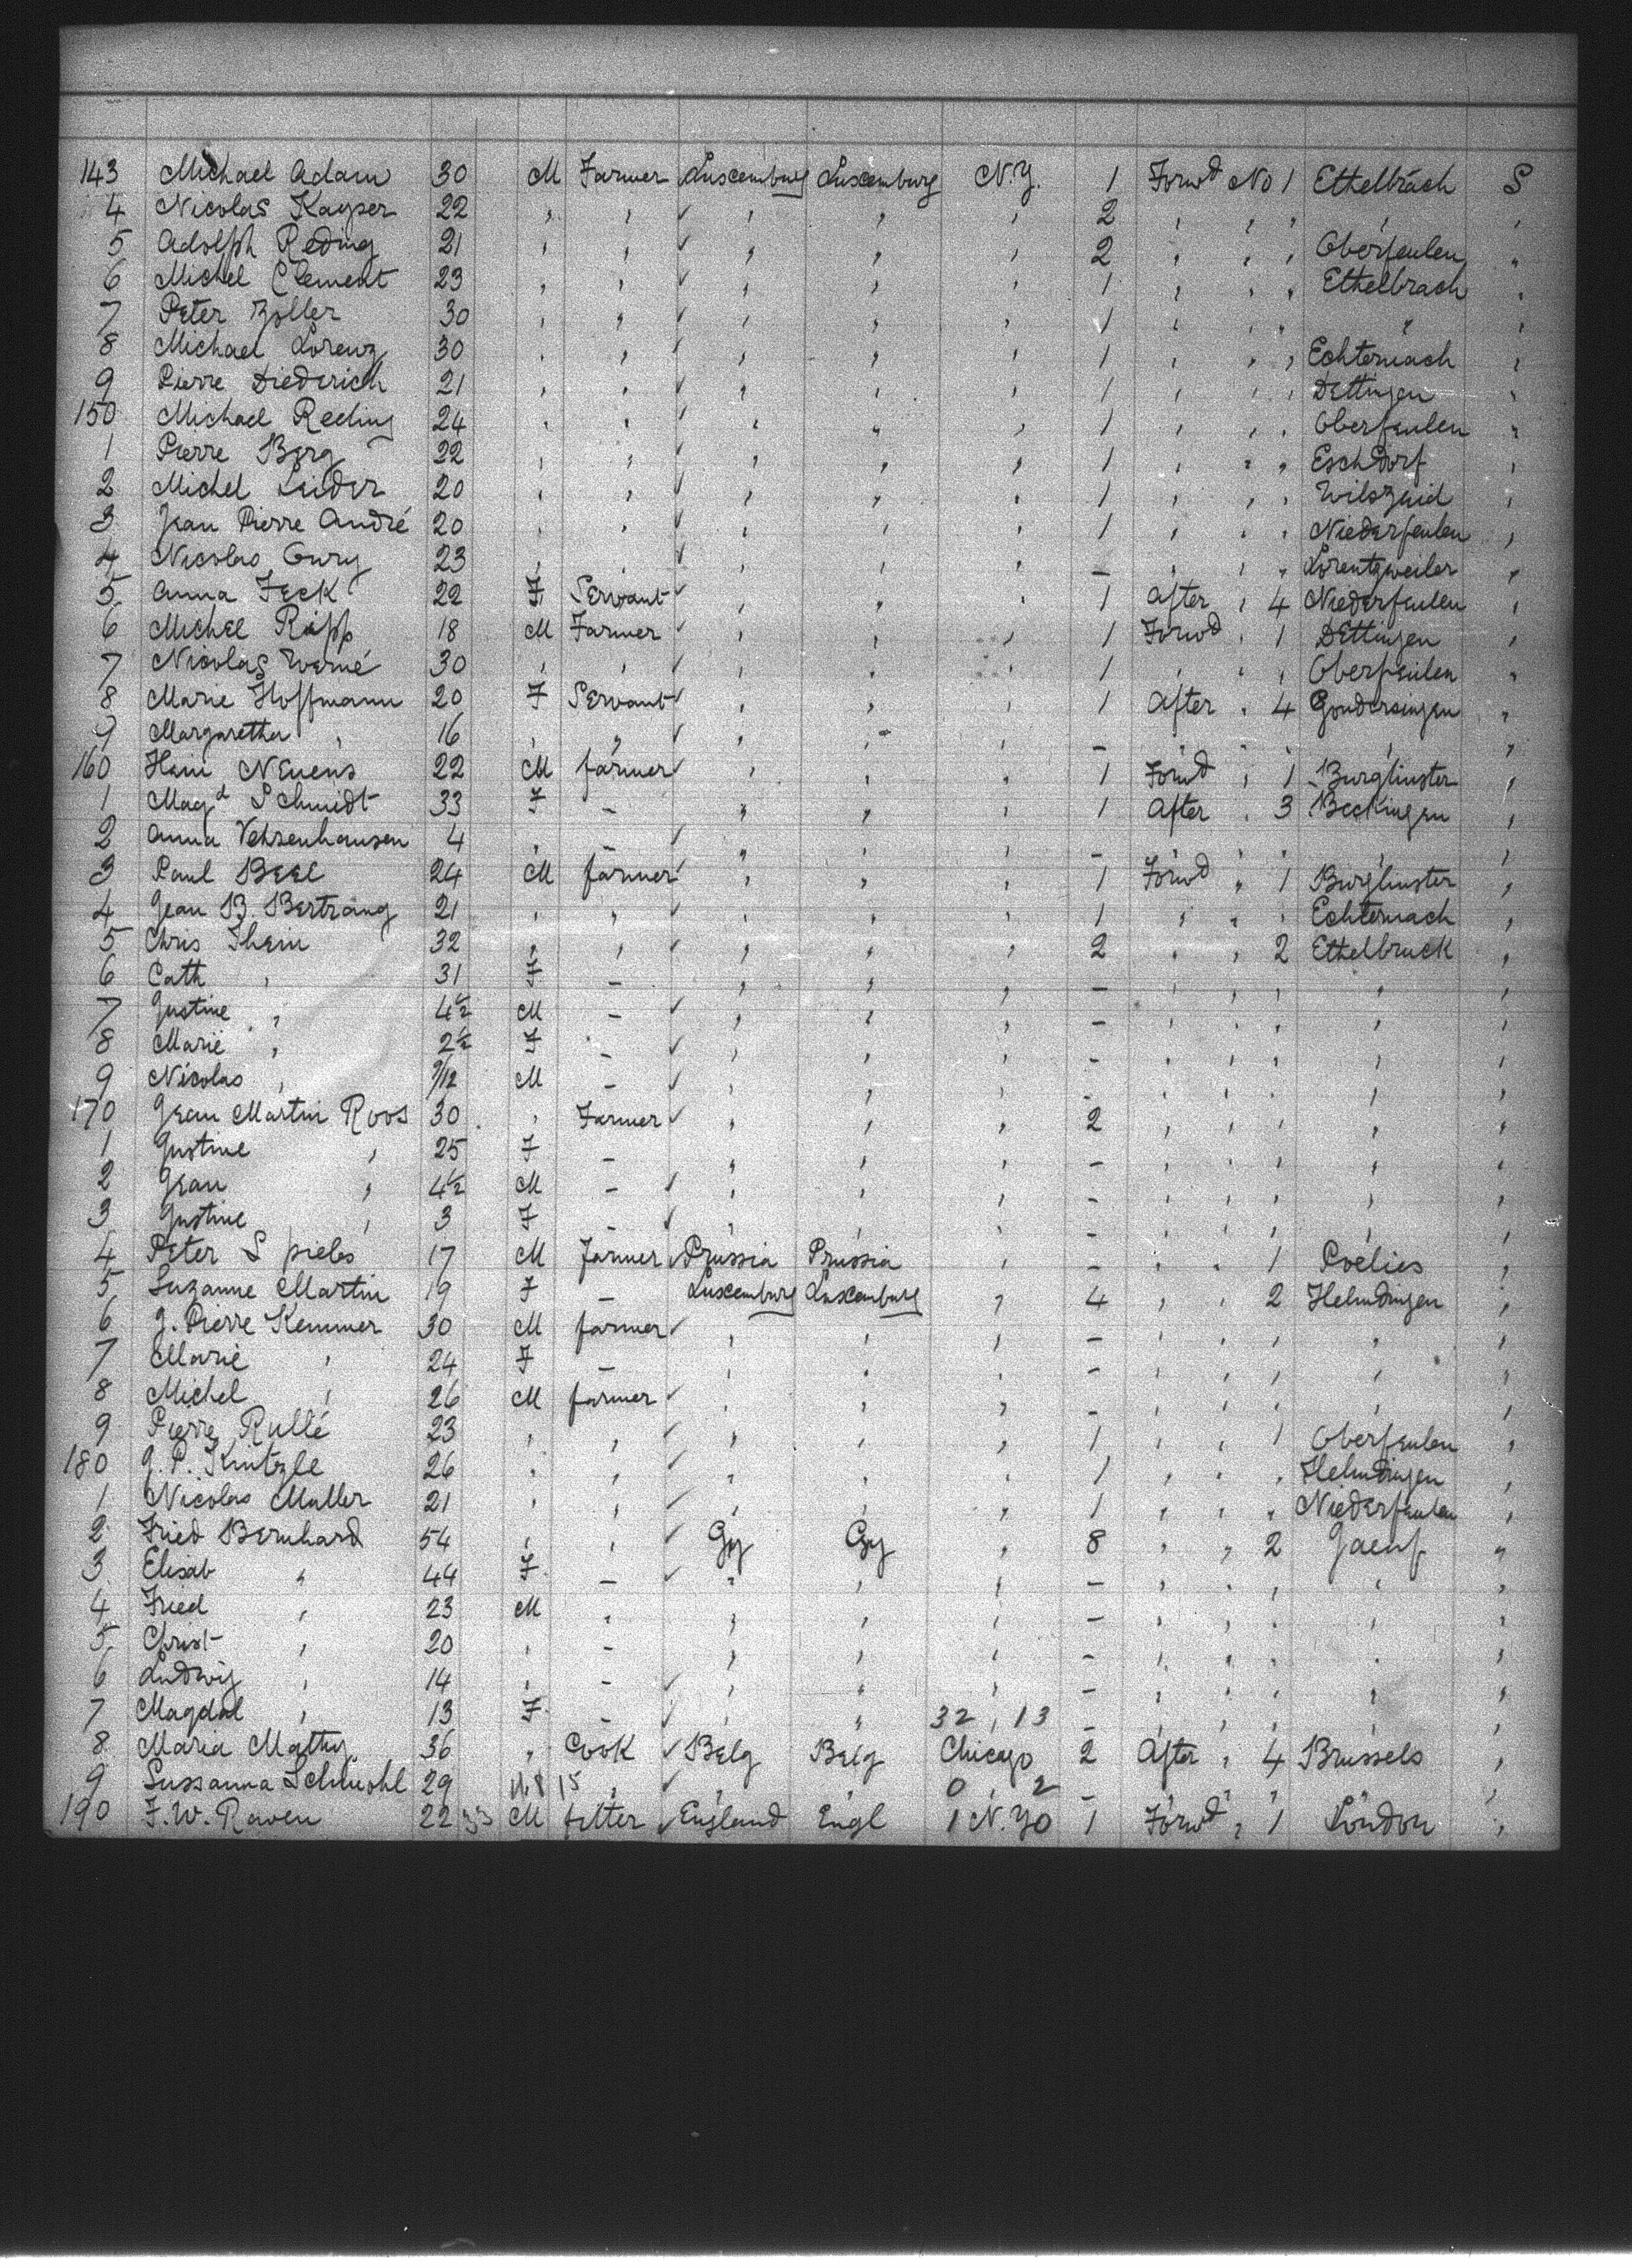 143 Michael Adam 30 M Farmer Luxemburg Luxemburg N.Y. 1 Forwd No 1 Ethelbrach S
4 Nicolas Kayser 22 , , ✓ , , , 2 , , , , ,
5 Adolph Reding 21 , , ✓ , , , 2 , , , Oberfeulen ,
6 Michel Clement 23 , , ✓ , , , 1 , , , Ethelbrach ,
7 Peter Zoller 30 , , ✓ , , , 1 , , , , ,
8 Michael Lorenz 30 , , ✓ , , , 1 , , , Echternach ,
9 Pierre Diederich 21 , , ✓ , , , 1 , , , Dettingen ,
150 Michael Reding 24 , , ✓ , , , 1 , , , Oberfeulen ,
1 Pierre Berg 22 , , ✓ , , , 1 , , , Eschdorf ,
2 Michel Leider 20 , , ✓ , , , 1 , , , ,
3 Jean Pierre André 20 , , ✓ , , , 1 , , , Niederfeulen ,
4 Nicolas 23 , , ✓ , , , – , , , Lorentzweiler ,
5 Anna Feck 22 F Servant ✓ , , , 1 After , 4 Niederfeulen ,
6 Michel Ripp 18 M Farmer ✓ , , , 1 Forwd , 1 Dettingen ,
7 Nicolas Werné 30 , , ✓ , , , 1 , , , Oberfeulen ,
8 Marie Hoffmann 20 F Servant ✓ , , , 1 After , 4 Gondersingen ,
9 Margaretha , 16 , , ✓ , , , – , , , , ,
160 Hein Neuens 22 M farmer ✓ , , , 1 Forwd , 1 Burglinster ,
1 Magd Schmidt 33 F – , , , 1 After , 3 Beckingen ,
2 Anna Vehsenhausen 4 , – ✓ , , , – , , , , ,
3 Paul Beel 24 M farmer ✓ , , , 1 Forwd , 1 Burglinster ,
4 Jean B. Bertrang 21 , , ✓ , , , 1 , , , Echternach ,
5 Chris Thein 32 , , ✓ , , , 2 , , 2 Ethelbruck ,
6 Cath , 31 F – , , , – , , , , ,
7 Justine , 4½ M – ✓ , , , – , , , , ,
8 Marie , 2½ F – ✓ , , , – , , , , ,
9 Nicolas , 9/12 M – ✓ , , , – , , , , ,
170 Jean Martin Roos 30 , Farmer ✓ , , , 2 , , , , ,
1 Justine , 25 F – , , , – , , , , ,
2 Jean , 4½ M – ✓ , , , – , , , , ,
3 Justine , 3 F – ✓ , , , – , , , , ,
4 Peter S piebs 17 M Farmer ✓ Prussia Prussia , – , , 1 ,
5 Suzanne Martin 19 F – Luxemburg Luxemburg , 4 , , 2 Helmdingen ,
6 J. Pierre Kemmer 30 M farmer ✓ , , , – , , , , ,
7 Marie , 24 F – , , , – , , , , ,
8 Michel , 26 M farmer ✓ , , , – , , , , ,
9 Pierre Rullé 23 , , ✓ , , , 1 , , 1 Oberfeulen ,
180 J. P. Kintzle 26 , , ✓ , , , 1 , , , Helmdingen ,
1 Nicolas Muller 21 , , ✓ , , , 1 , , , Niederfeulen ,
2 Fried Bernhard 54 , , ✓ Gy Gy , 8 , , 2 ,
3 Elisab , 44 F – ✓ , , , – , , , , ,
4 Fried , 23 M , , , , – , , , , ,
5 Christ , 20 , – , , , – , , , , ,
6 Ludwig , 14 , – ✓ , , , – , , , , ,
7 Magdal , 13 F – ✓ , , 32 , 13 – , , , , ,
8 Maria Mathy 36 , Cook ✓ Belg Belg Chicago 2 After , 4 Brussels ,
9 Sussanna Schmohl 29 15 , ✓ , , 0 , 2 – , , , , ,
190 F. W. Raven 22 33 M fitter ✓ England Engl 1 N.Yo 1 Forwd , 1 London ,